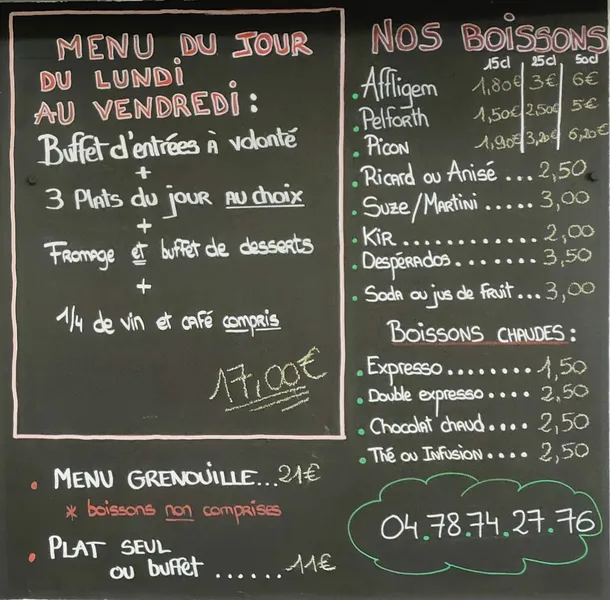 MENU DU JOUR
DU LUNDI
AU VENDREDI :
Buffet d'entrées à volonté
+
3 Plats du jour AU CHOIX
+
Fromage et buffet de desserts
+
1/4 de vin et café compris
17,00€
MENU GRENOUILLE...21€
* boissons non comprises
PLAT SEUL
ou buffet ......11€
NOS BOISSONS
15cl 25cl 50cl
Affligem 1,80€ 3€ 6€
Pelforth 1,50€ 2,50€ 5€
Picon 1,90€ 3,20€ 6,20€
Ricard ou Anisé ... 2,50
Suze/Martini ..... 3,00
Kir............ 2,00
Despérados....... 3,50
Soda ou jus de fruit... 3,00
BOISSONS CHAUDES :
Expresso........ 1,50
Double expresso.... 2,50
Chocolat chaud.... 2,50
Thé ou Infusion.... 2,50
04.78.74.27.76